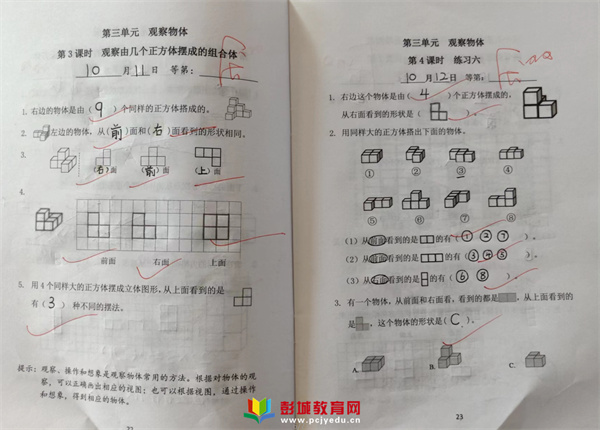 第三单元 观察物体
第3课时 观察由几个正方体摆成的组合体
10月11日 等第:
1. 右边的物体是由(9)个同样的正方体搭成的。
2. 左边的物体,从(前)面和(右)面看到的形状相同。
3.
(右)面 (前)面 (上)面
4.
前面 右面 上面
5. 用4个同样大的正方体摆成立体图形,从上面看到的是
有(3)种不同的摆法。
提示:观察、操作和想象是观察物体常用的方法。根据对物体的观
察,可以正确画出相应的视图;也可以根据视图,通过操作
和想象,得到相应的物体。
22
第三单元 观察物体
第4课时 练习六
10月12日 等第:
1. 右边这个物体是由(4)个正方体摆成的。
从右面看到的形状是( )。
2. 用同样大的正方体搭出下面的物体。
① ② ③ ④
⑤ ⑥ ⑦ ⑧
(1)从前面看到的是 的有(①②⑦)
(2)从前面看到的是 的有(③④⑤)
(3)从右面看到的是 的有(⑥⑧)
3. 有一个物体,从前面和右面看,看到的都是 ,从上面看到的
是 ,这个物体的形状是(C)。
A. B. C.
23
彭城教育网
www.pcjyedu.cn